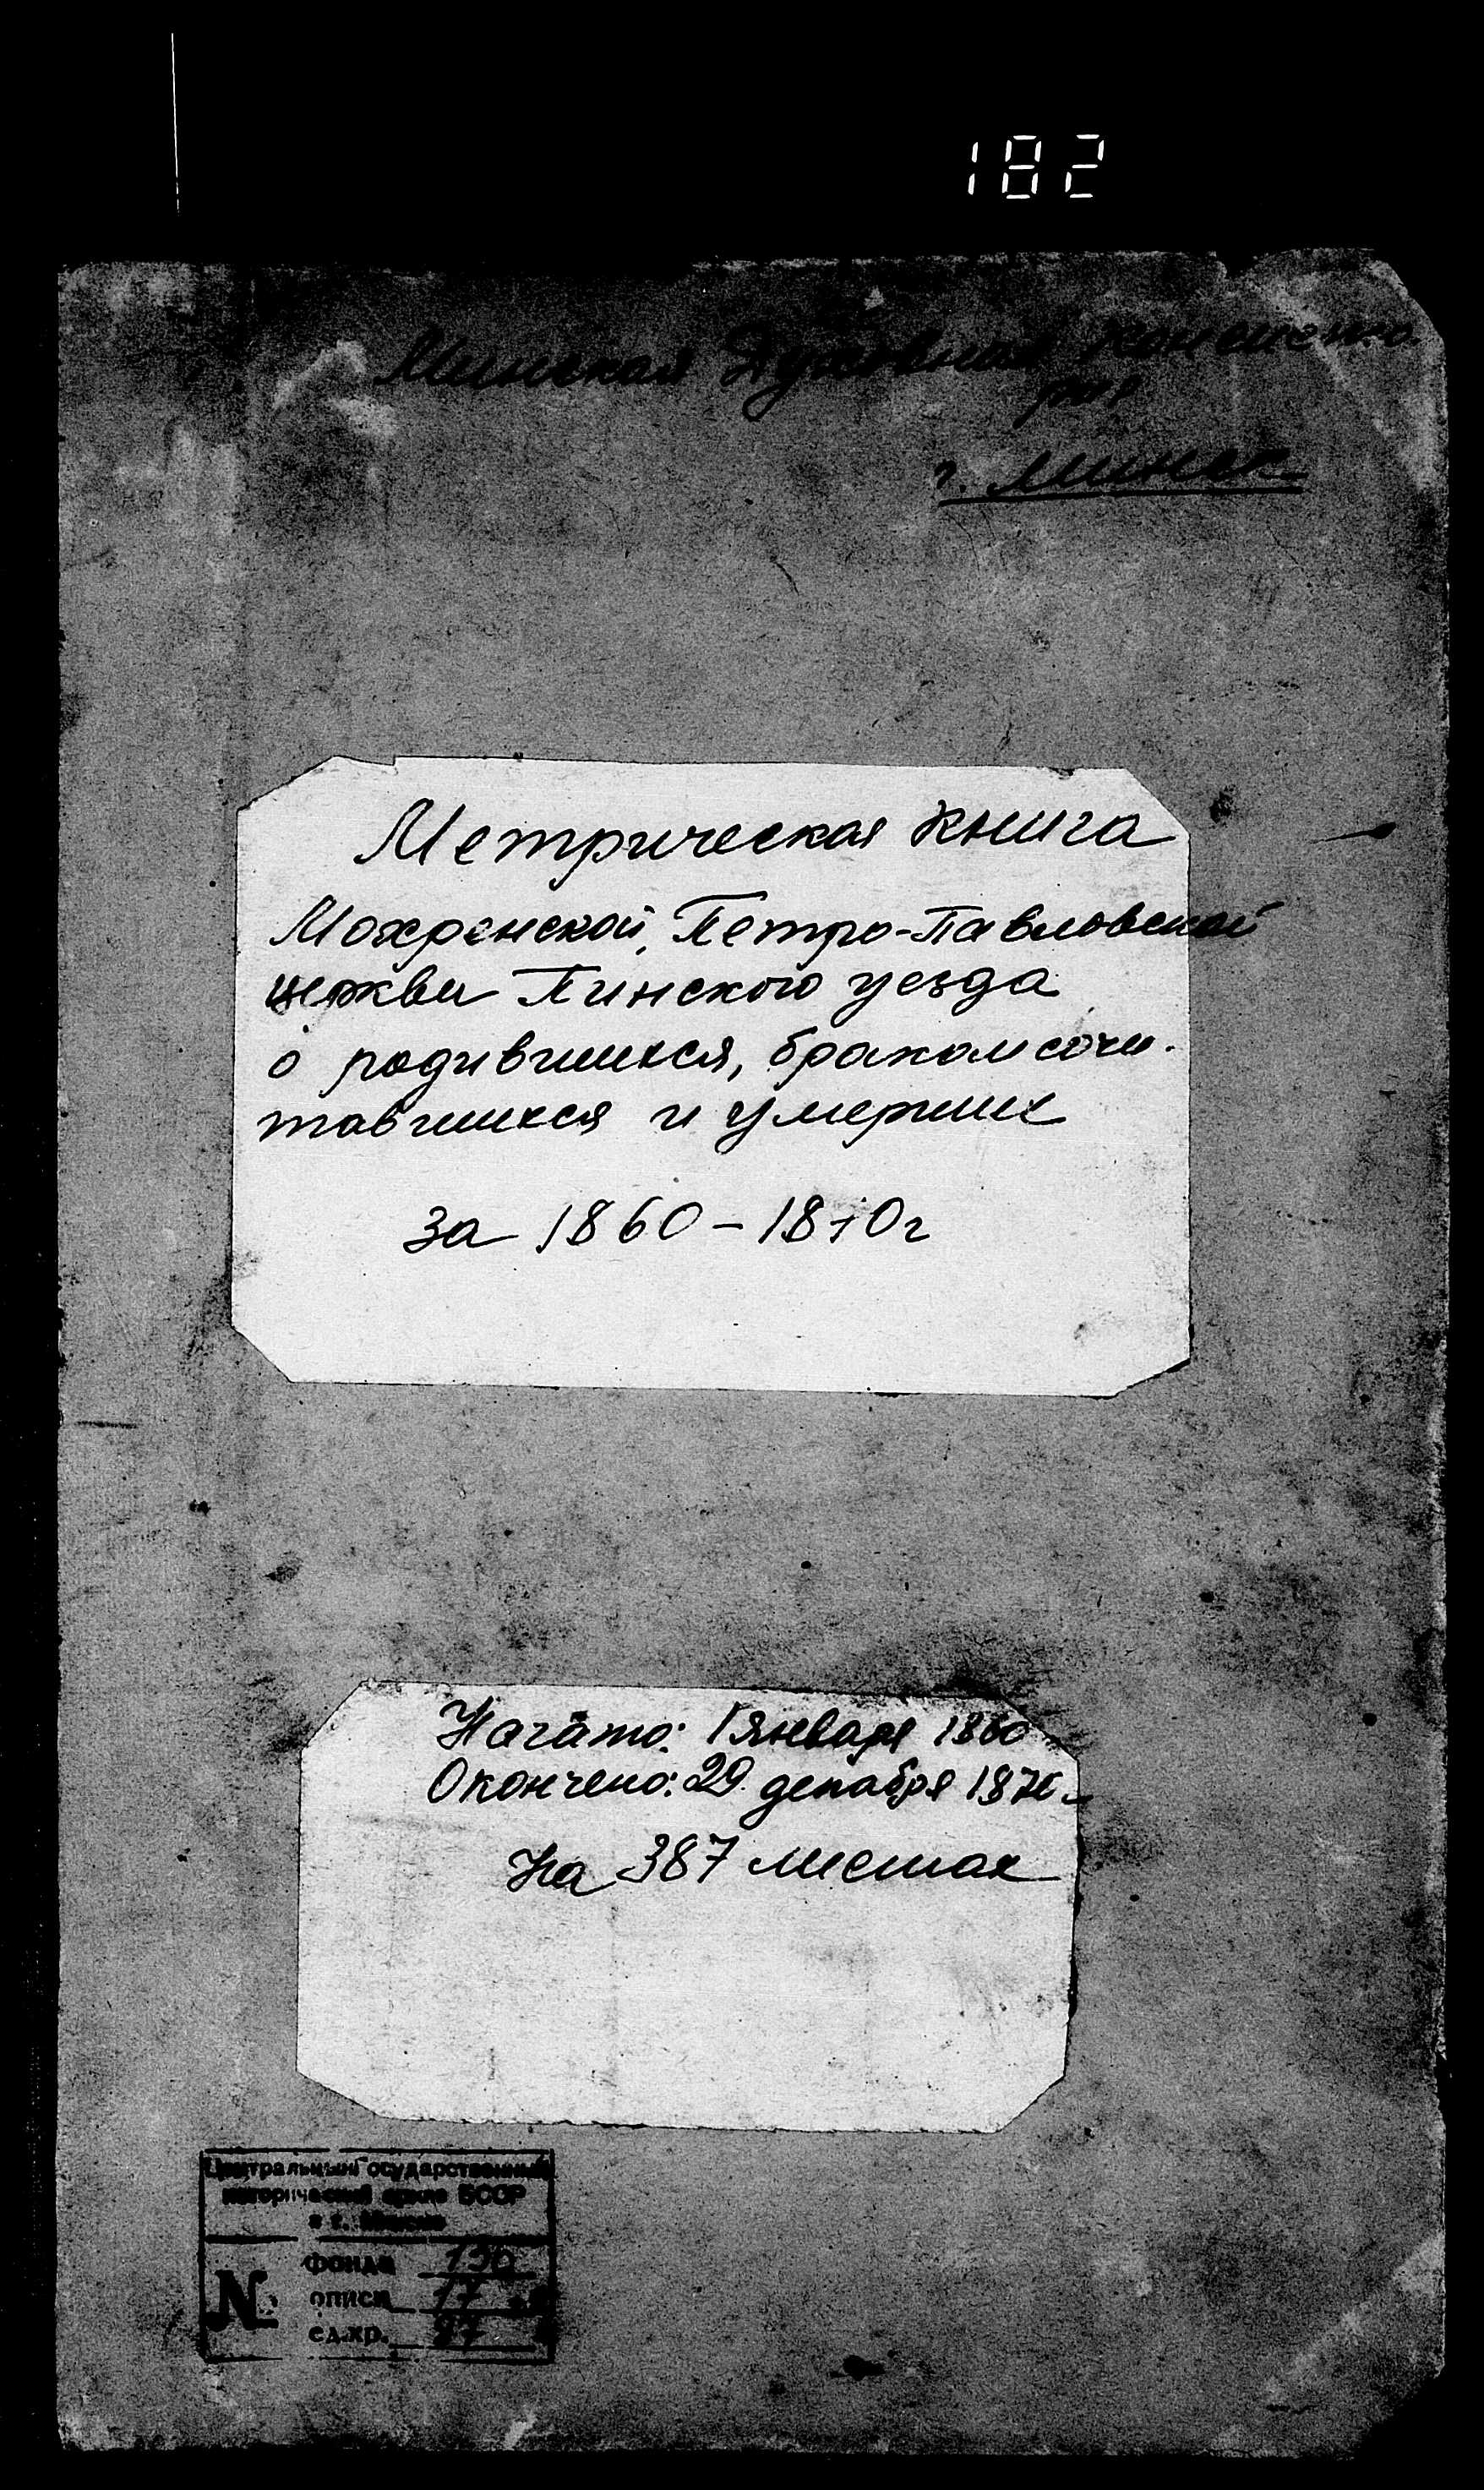 182
Минская Духовная Консисто
рия
г. Минск
Метрическая книга
Мохренской, Петро-Павловской
церкви Пинского уезда
о родившихся, бракомсочи-
тавшихся и умерших
за 1860 – 1870г
Начато: 1 января 1860
Окончено: 29 декабря 1870
На 387 листах
Центральный государственный
исторический архив БССР
в г. Минске
№
фонда 136
описи 17
ед.хр.